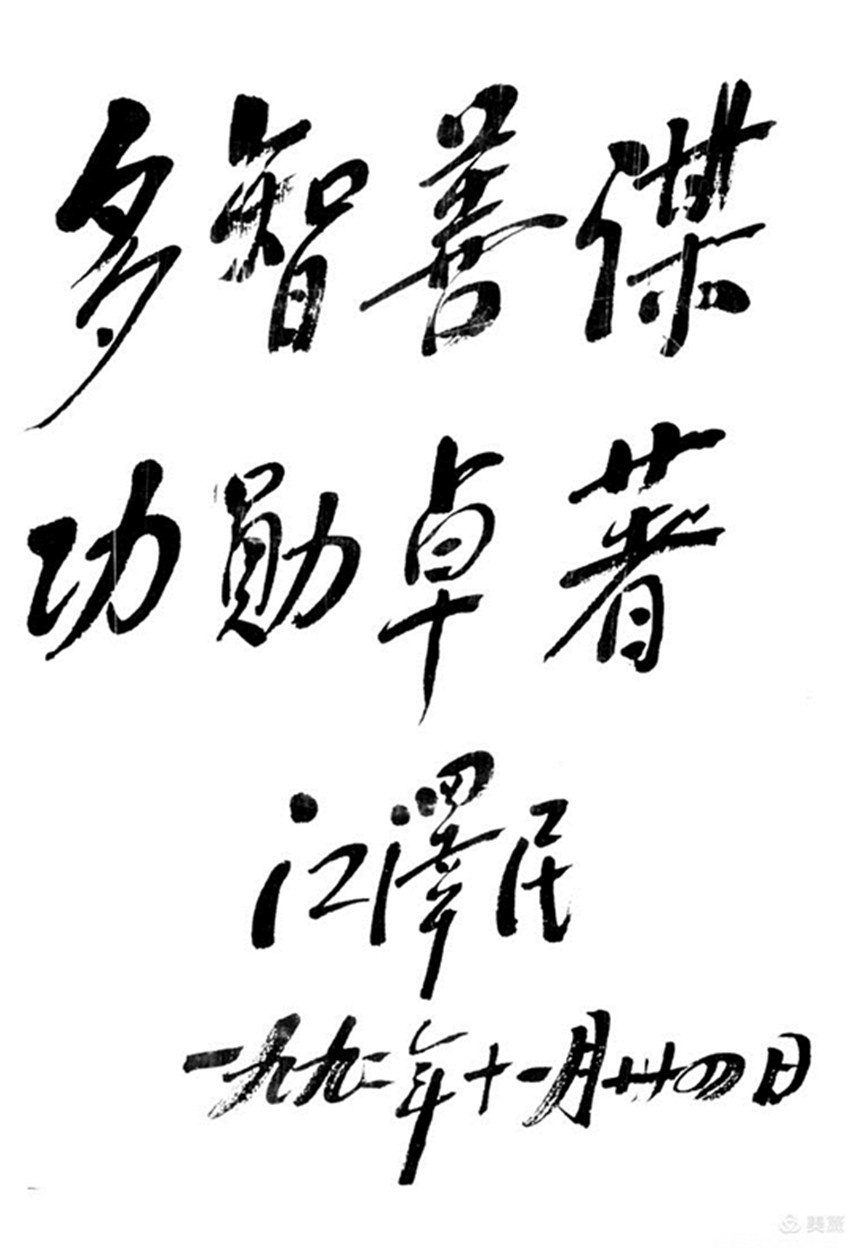 多智善谋
功勋卓著
江澤民
一九九二年十一月廿四日
美篇